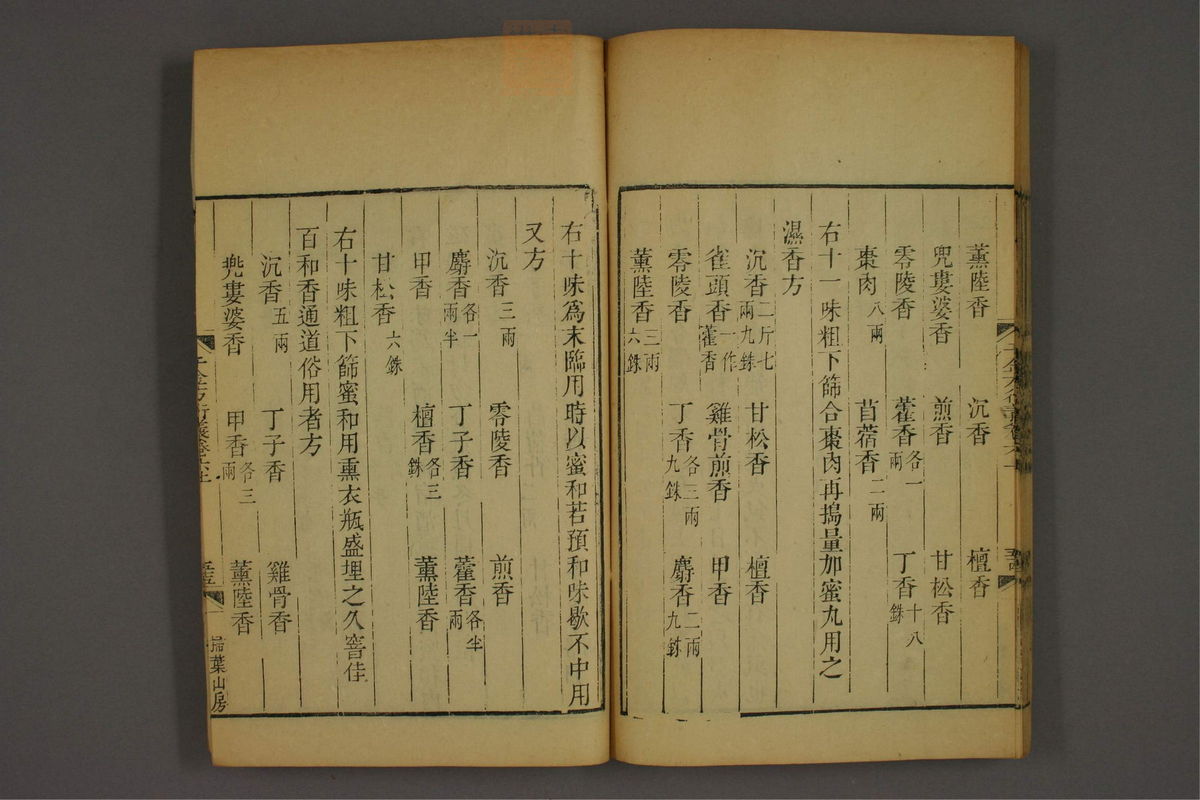 薰陸香　沉香　檀香
兜婁婆香　煎香　甘松香
零陵香　藿香各一兩　丁香十八銖
棗肉八兩　苜蓿香二兩
右十一味粗下篩合棗肉再搗量加蜜丸用之
濕香方
沉香二斤七兩九銖　甘松香　檀香
雀頭香一作藿香　雞骨煎香　甲香
零陵香　丁香各三兩九銖　麝香二兩九銖
薰陸香三兩六銖
右十味爲末臨用時以蜜和若預和味歇不中用
又方
沉香三兩　零陵香　煎香
麝香各一兩半　丁子香　藿香各半兩
甲香　檀香各三銖　薰陸香
甘松香六銖
右十味粗下篩蜜和用熏衣瓶盛埋之久窨佳
百和香通道俗用者方
沉香五兩　丁子香　雞骨香
兜婁婆香　甲香各三兩　薰陸香
千金方衍義卷六上
葉山房